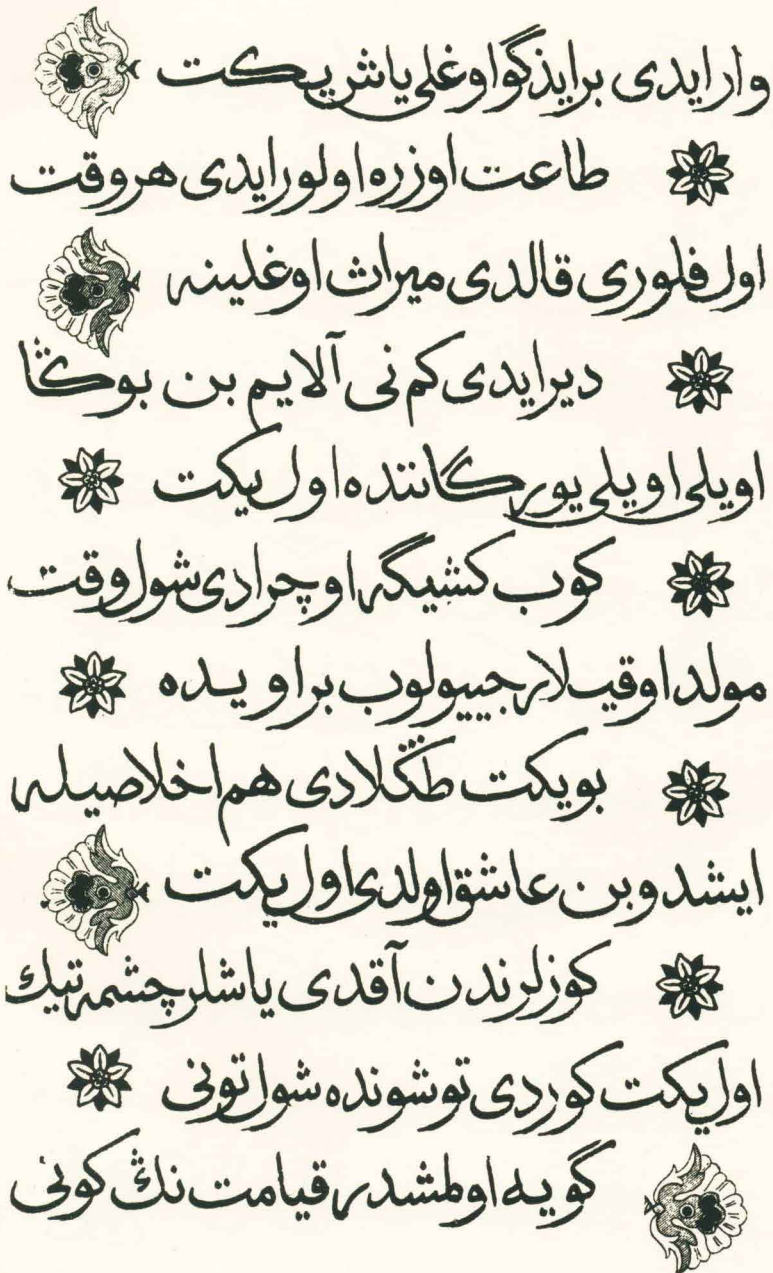 وار ایدی بر ایذگو اوغلی یاش ییکت
طاعت اوزره اولور ایدی هر وقت
اول فلوری قالدی میراث اوغلینه
دیر ایدی کم نی آلایم بن بوڭا
اویلی اویلی یورگاننده اول ییکت
کوب کشیگه اوچرادی شول وقت
مولد اوقیلار جییولوب بر اویده
بو یکت طڭلادی هم اخلاصیله
ایشدوبن عاشق اولدی اول یکت
کوزلرندن آقدی یاشلر چشمه تیك
اول یکت کوردی توشونده شول تونی
گویه اولمشدر قیامت نڭ کونی